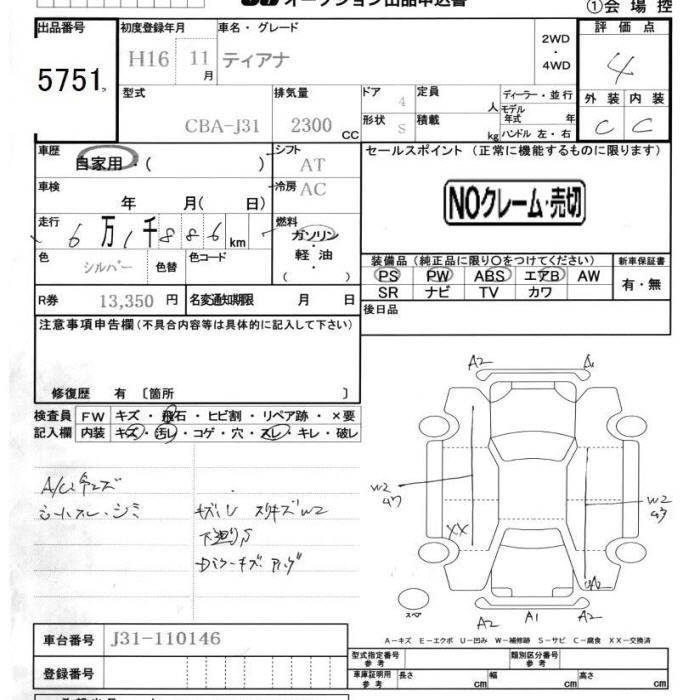 オークション出品申込書
①会場控
出品番号 初度登録年月 車名・グレード 評価点
5751 H16 11月 ティアナ 2WD・4WD 4
型式 排気量 ドア 定員 ディーラー・並行 外装 内装
CBA-J31 2300 CC 4 人 モデル年式 年 C C
形状 S 積載 kg ハンドル 左・右
車歴 自家用・( ) シフト AT セールスポイント (正常に機能するものに限ります)
車検 年 月( 日) 冷房 AC NOクレーム・売切
走行 6万1千886km 燃料 ガソリン・軽油( )
色 シルバー 色替 色コード
装備品 (純正品に限り○をつけてください) 新車保証書
PS PW ABS エアB AW 有・無
SR ナビ TV カワ
R券 13,350 円 名変通知期限 月 日
後日品
注意事項申告欄(不具合内容等は具体的に記入して下さい)
修復歴 有 〔箇所 〕
検査員 FW キズ・飛石・ヒビ割・リペア跡・×要
記入欄 内装 キズ・汚レ・コゲ・穴・スレ・キレ・破レ
A2 A
シートスレ・シミ W2
下廻りS
W2 W2
XX
A2
スペ
A2 A1 A2
A−キズ E−エクボ U−凹み W−補修跡 S−サビ C−腐食 XX−交換済
車台番号 J31-110146
登録番号
型式指定番号 参考 類別区分番号 参考
車庫証明用 参考 長さ cm 幅 cm 高さ cm